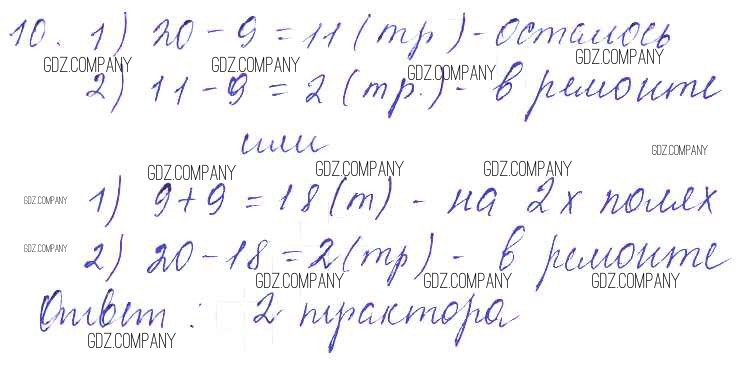 10. 1) 20 - 9 = 11 (тр) - осталось
GDZ.COMPANY GDZ.COMPANY GDZ.COMPANY GDZ.COMPANY
2) 11 - 9 = 2 (тр.) - в ремонте
или
GDZ.COMPANY GDZ.COMPANY GDZ.COMPANY GDZ.COMPANY
GDZ.COMPANY 1) 9 + 9 = 18 (т) - на 2х полях
GDZ.COMPANY 2) 20 - 18 = 2 (тр) - в ремонте
GDZ.COMPANY GDZ.COMPANY GDZ.COMPANY
Ответ: 2 трактора
GDZ.COMPANY